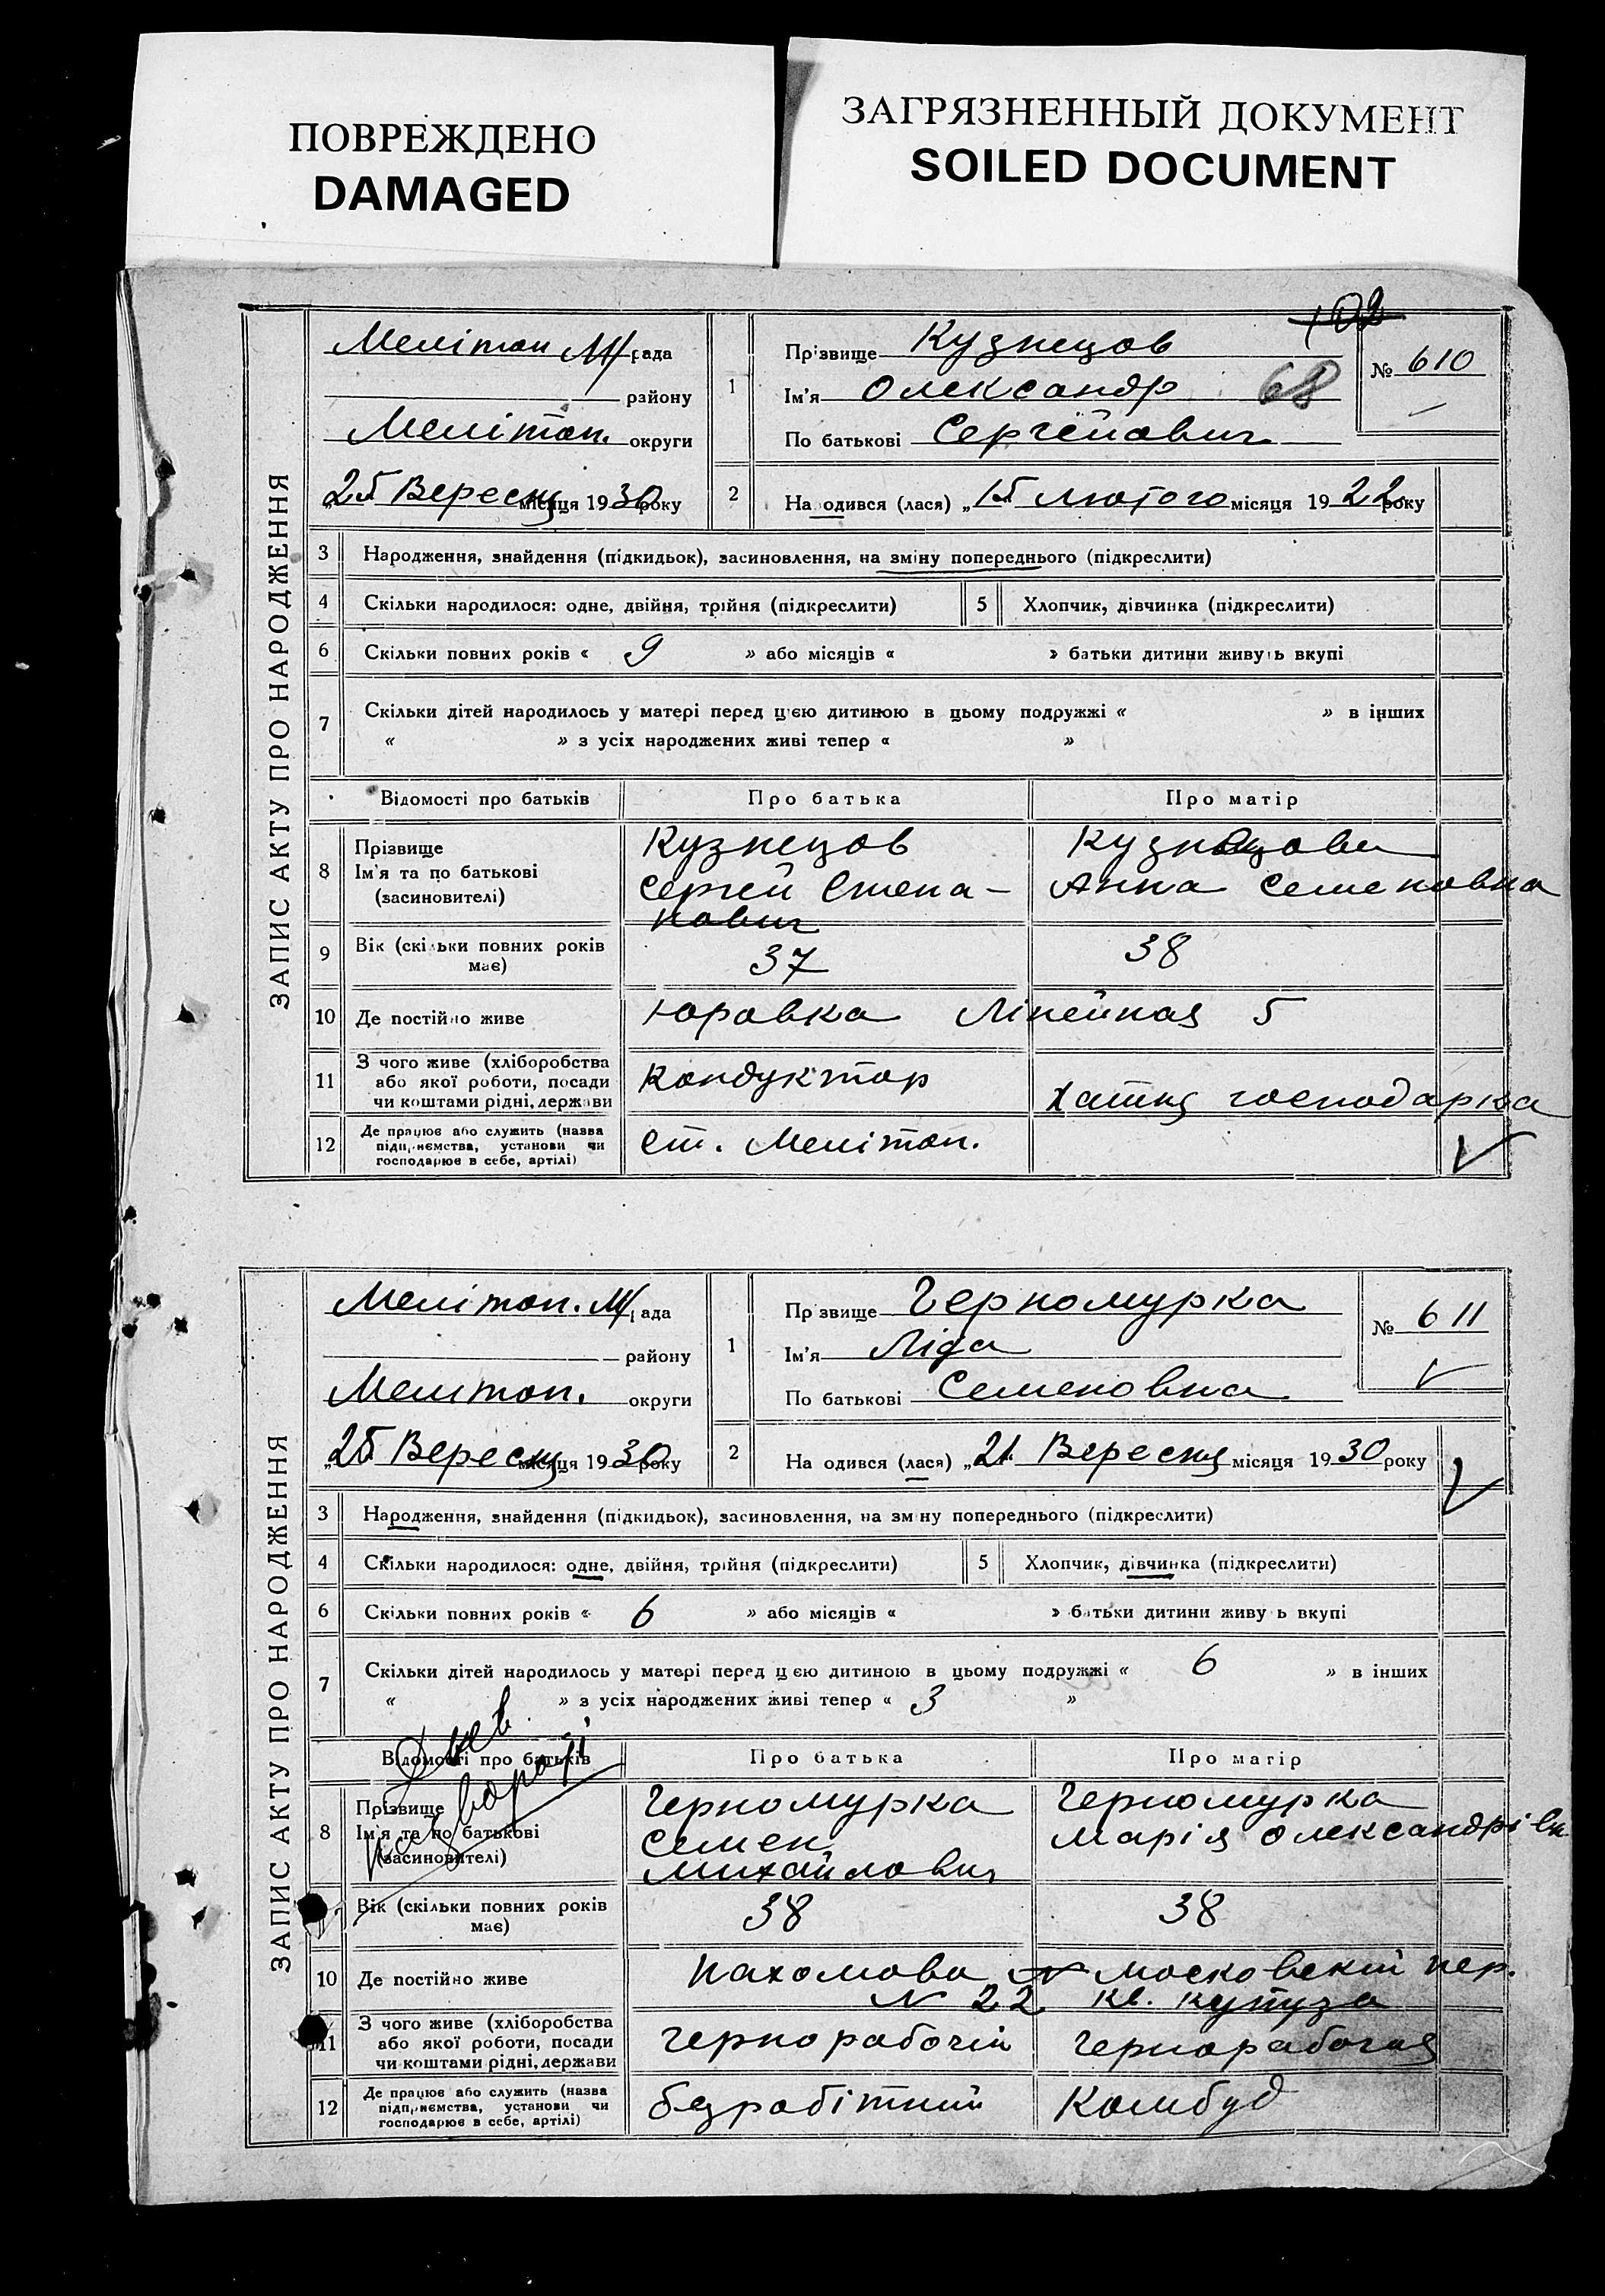 ПОВРЕЖДЕНО
DAMAGED
ЗАГРЯЗНЕННЫЙ ДОКУМЕНТ
SOILED DOCUMENT
ЗАПИС АКТУ ПРО НАРОДЖЕННЯ
Мелітоп М/рада
району
Мелітоп. округи
„25 Вересня місяця 1930 року
1
Прізвище Кузнецов
Ім'я Олександр
По батькові Сергейович
102
68
№ 610
2
На одився (лася) „15 Лютого місяця 1922 року
3 Народження, знайдення (підкидьок), засиновлення, на зміну попереднього (підкреслити)
4 Скільки народилося: одне, двійня, трійня (підкреслити) 5 Хлопчик, дівчинка (підкреслити)
6 Скільки повних років « 9 » або місяців « » батьки дитини живуть вкупі
7 Скільки дітей народилось у матері перед цією дитиною в цьому подружжі « » в інших
« » з усіх народжених живі тепер « »
Відомості про батьків Про батька Про матір
8 Прізвище Ім'я та по батькові (засиновителі)
Кузнецов
Сергей Степа-
нович
Кузнецова
Анна Семеновна
9 Вік (скільки повних років має) 37 38
10 Де постійно живе Юровка Лінейная 5
11 З чого живе (хліборобства
або якої роботи, посади
чи коштами рідні, держави
Кондуктор Хатня господарка
12 Де працює або служить (назва
підприємства, установи чи
господарює в себе, артілі)
ст. Мелітоп.
ЗАПИС АКТУ ПРО НАРОДЖЕННЯ
Мелітоп. М/рада
району
Мелітоп. округи
„25 Вересня місяця 1930 року
1
Прізвище Черномурка
Ім'я Ліда
По батькові Семеновна
№ 611
2
На одився (лася) „21 Вересня місяця 1930 року
3 Народження, знайдення (підкидьок), засиновлення, на зміну попереднього (підкреслити)
4 Скільки народилося: одне, двійня, трійня (підкреслити) 5 Хлопчик, дівчинка (підкреслити)
6 Скільки повних років « 6 » або місяців « » батьки дитини живуть вкупі
7 Скільки дітей народилось у матері перед цією дитиною в цьому подружжі « 6 » в інших
« » з усіх народжених живі тепер « 3 »
Відомості про батьків Про батька Про матір
8 Прізвище Ім'я та по батькові (засиновителі)
Черномурка
Семен
Михайлович
Черномурка
Марія Олександрівн
Вік (скільки повних років має) 38 38
10 Де постійно живе Пахомова Московский пер.
N 22 кв.
11 З чого живе (хліборобства
або якої роботи, посади
чи коштами рідні, держави
Чернорабочій Чернорабочая
12 Де працює або служить (назва
підприємства, установи чи
господарює в себе, артілі)
безробітний Комбуд